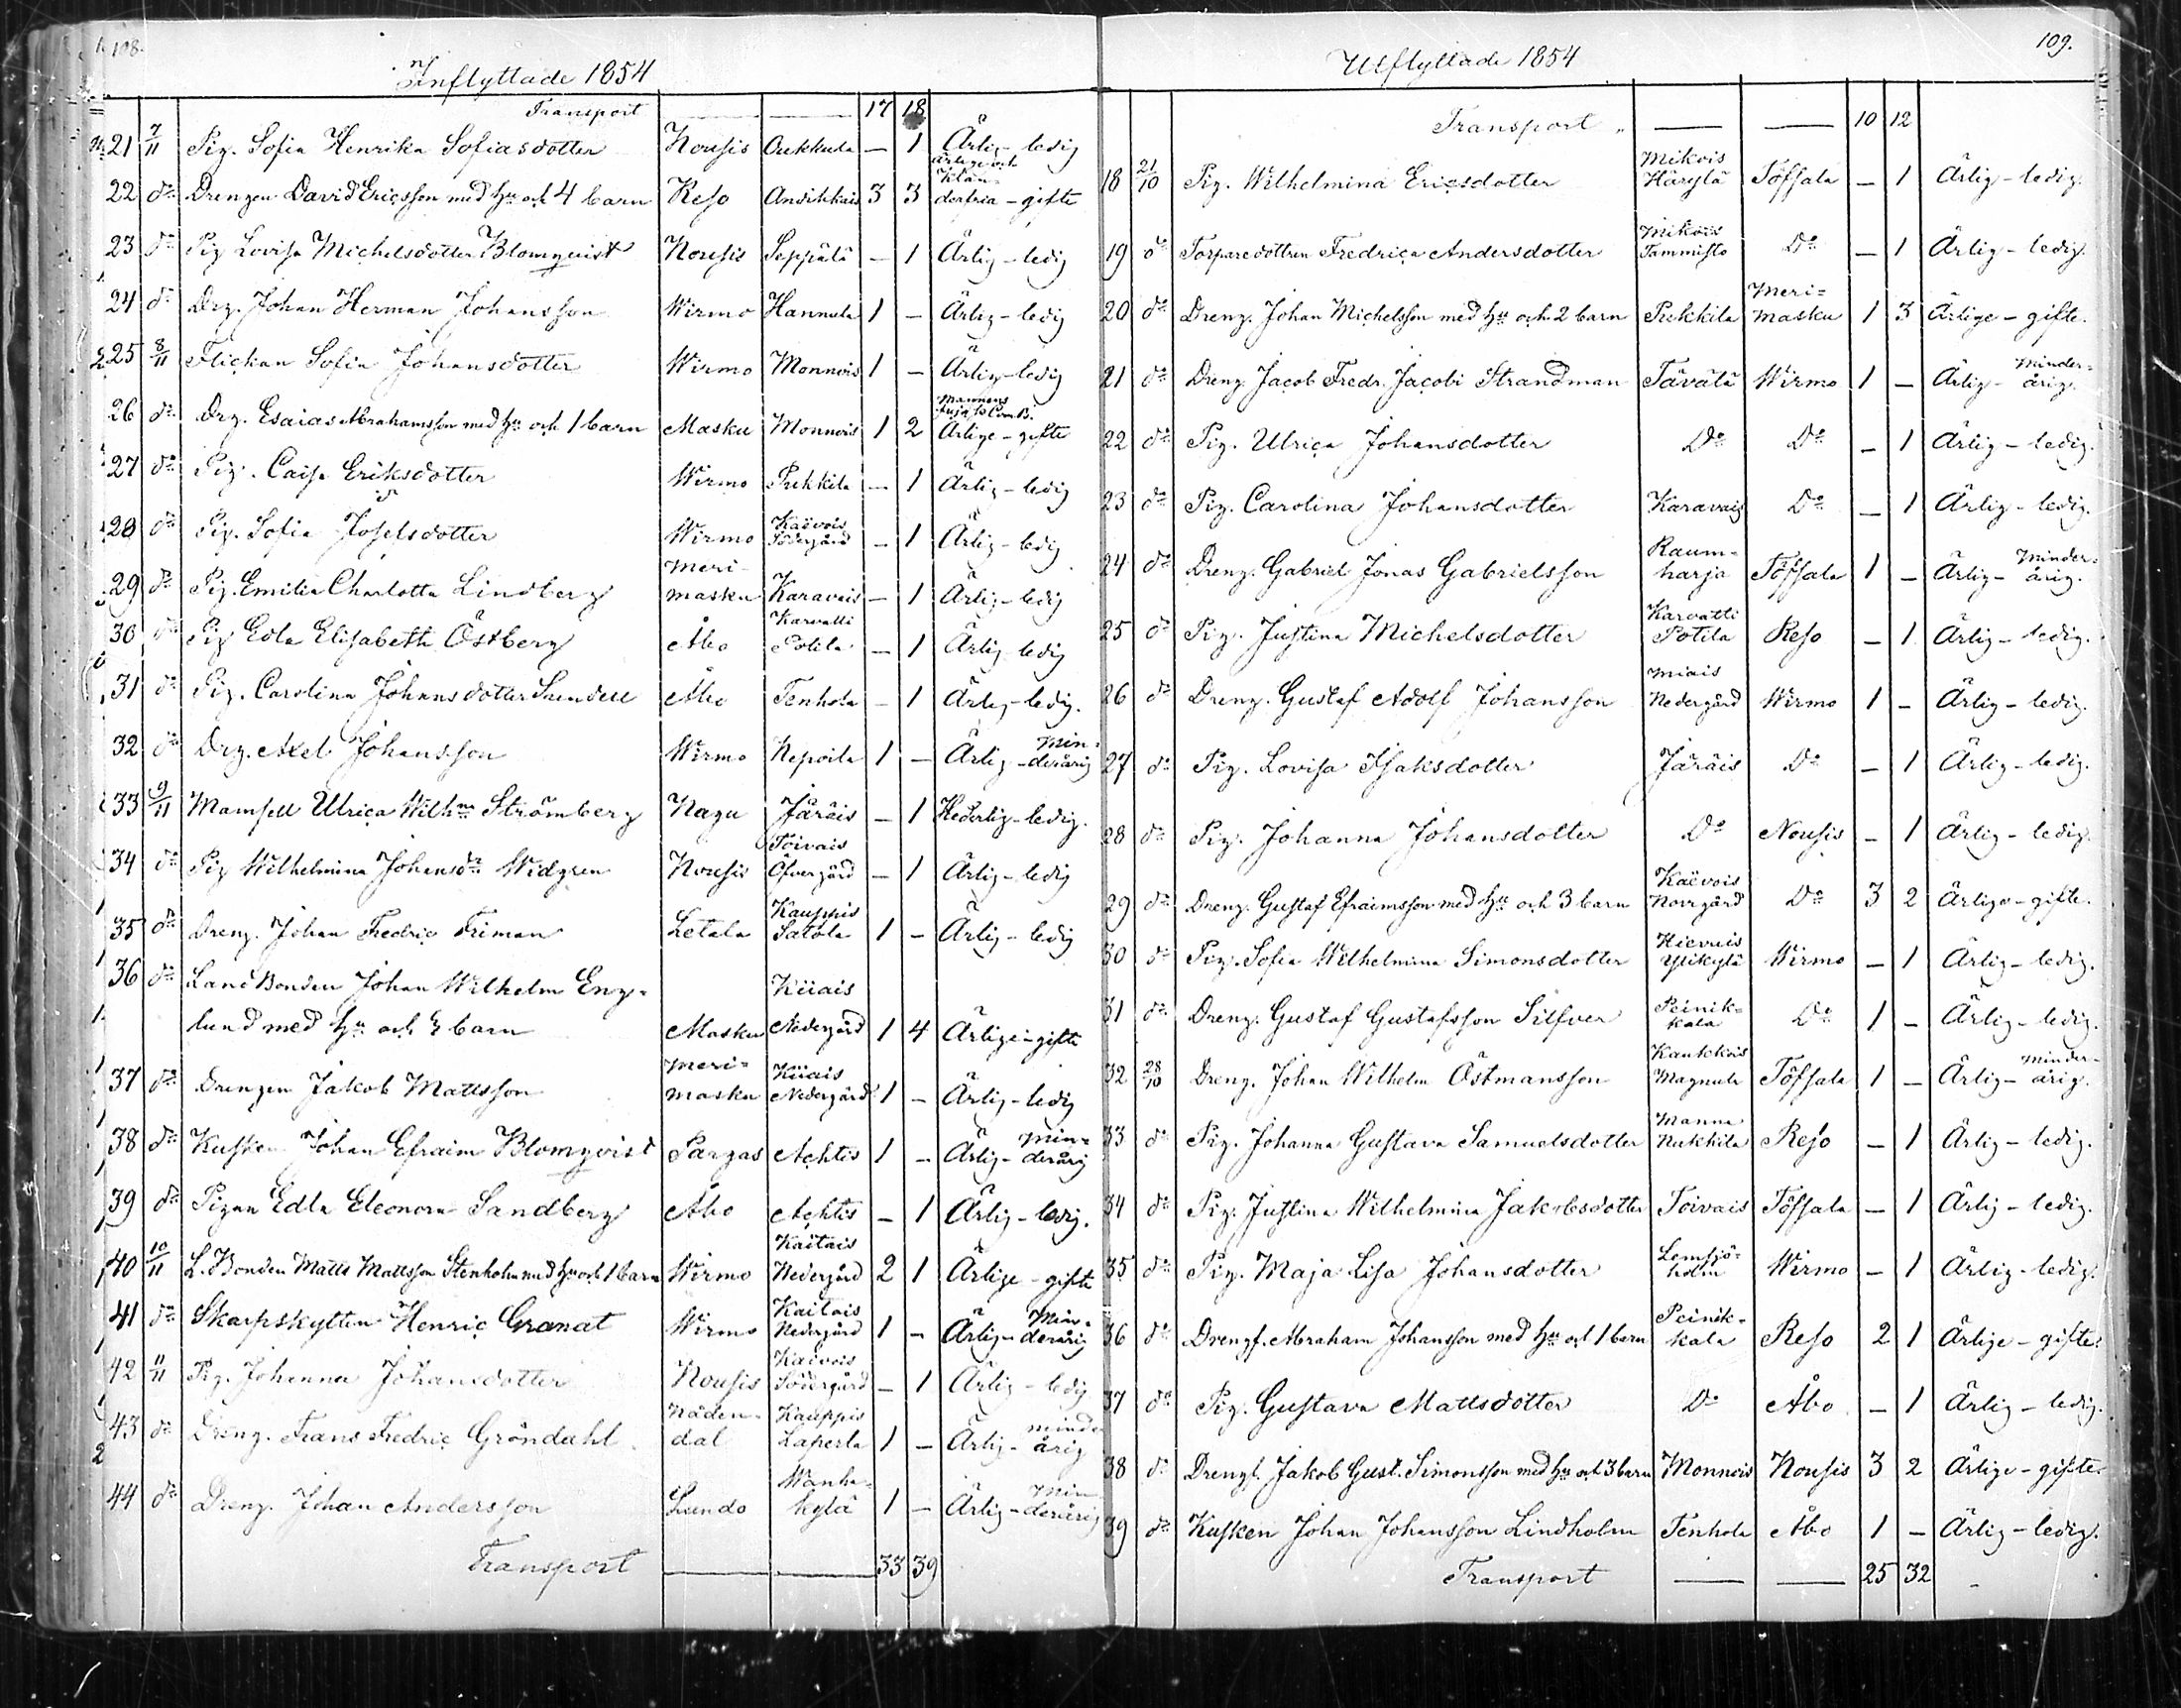 108.
Inflyttade 1854
Transport — — 17 18
21 7/11 Pig. Sofia Henrika Sofiasdotter Nousis Oukkula — 1 Ärlig - ledig
22 do Drengen David Ericsson med hu och 4 barn Reso Ansikkais 3 3 Ärlige och klanderfria - gifte
23 do Pig Lovisa Michelsdotter Blomqvist Nousis Seppälä — 1 Ärlig - ledig
24 do Drg. Johan Herman Johansson Wirmo Hannula 1 — Ärlig - ledig
25 8/11 Flickan Sofia Johansdotter Wirmo Monnois 1 — Ärlig - ledig
26 do Drg. Esaias Abrahamsson med hu och 1 barn Masku Monnois 1 2 Ärlige - gifte
27 do Pig. Caisa Eriksdotter Wirmo Pukkila — 1 Ärlig - ledig
28 do Pig. Sofia Josefsdotter Wirmo Kaivois Södergård — 1 Ärlig - ledig
29 do Pig. Emilia Charlotta Lindberg Merimasku Karavais — 1 Ärlig - ledig
30 do Pig Eda Elisabeth Östberg Åbo Karvatti Potila — 1 Ärlig - ledig
31 do Pig. Carolina Johansdotter Sundell Åbo Tenhola — 1 Ärlig - ledig.
32 do Drg. Axel Johansson Wirmo Nepoila 1 — Ärlig - minderårig
33 9/11 Mamsell Ulrica Wilhna Strömberg Nagu Järäis — 1 Hederlig - ledig.
34 do Pig Wilhelmina Johansdr Widgren Nousis Toivais Öfvergård — 1 Ärlig - ledig
35 do Dreng. Johan Fredric Friman Letala Kauppis Satola 1 — Ärlig - ledig
36 do LandBonden Johan Wilhelm Eng-
lund med hu och 3 barn Masku Kiiais Nedergård 1 4 Ärlige - gifte
37 do Drengen Jakob Mattsson Merimasku Kiiais Nedergård 1 — Ärlig - ledig
38 do Kusken Johan Efraim Blomqvist Pargas Achtis 1 — Ärlig - minderårig
39 do Pigan Edla Eleonora Sandberg Åbo Achtis — 1 Ärlig - ledig.
40 10/11 L. Bonden Matts Mattsson Stenholm med hu och 1 barn Wirmo Kaitais Nedergård 2 1 Ärlige - gifte
41 do Skarpskytten Henric Granat Wirmo Kaitais Nedergård 1 — Ärlig - minderårig
42 11/11 Pig. Johanna Johansdotter Nousis Kaivois Södergård — 1 Ärlig - ledig
43 do Dreng. Frans Fredric Gröndahl Nådendal Kauppis Laperla 1 — Ärlig - minderårig
44 do Dreng. Johan Andersson Lundo Wanhakylä 1 — Ärlig - minderårig
Transport — — 33 39
109.
Utflyttade 1854
Transport — — 10 12
18 21/10 Pig. Wilhelmina Ericsdotter Mikois Härylä Töfsala — 1 Ärlig - ledig.
19 do Torparedottren Fredrica Andersdotter Mikois Tammisto Do — 1 Ärlig - ledig.
20 do Dreng. Johan Michelsson med hu och 2 barn Pukkila Merimasku 1 3 Ärlige - gifte.
21 do Dreng Jacob Fredr. Jacobi Strandman Tävälä Wirmo 1 — Ärlig - minderårig.
22 do Pig. Ulrica Johansdotter Do Do — 1 Ärlig - ledig.
23 do Pig. Carolina Johansdotter Karavais Do — 1 Ärlig - ledig.
24 do Dreng. Gabriel Jonas Gabrielsson Raumharja Töfsala 1 — Ärlig - minderårig.
25 do Pig. Justina Michelsdotter Karvatti Potila Reso — 1 Ärlig - ledig.
26 do Dreng. Gustaf Adolf Johansson Miais Nedergård Wirmo 1 — Ärlig - ledig.
27 do Pig. Lovisa Isaksdotter Järäis Do — 1 Ärlig - ledig.
28 do Pig. Johanna Johansdotter Do Nousis — 1 Ärlig - ledig.
29 do Dreng. Gustaf Efraimsson med hu och 3 barn Kaivois Norrgård Do 3 2 Ärlige - gifte.
30 do Pig. Sofia Wilhelmina Simonsdotter Hievais Ylikylä Wirmo — 1 Ärlig - ledig.
31 do Dreng. Gustaf Gustafsson Silfver Peinikkala Do 1 — Ärlig - ledig.
32 28/10 Dreng. Johan Wilhelm Östmansson Kaukkois Magnula Töfsala 1 — Ärlig - minderårig.
33 do Pig. Johanna Gustava Samuelsdotter Manna Nukkila Reso — 1 Ärlig - ledig.
34 do Pig. Justina Wilhelmina Jakobsdotter Toivais Töfsala — 1 Ärlig - ledig.
35 do Pig. Maja Lisa Johansdotter Lemsjöholm Wirmo — 1 Ärlig - ledig.
36 do Drengf. Abraham Johansson med hu och 1 barn Peinikkala Reso 2 1 Ärlige - gifte.
37 do Pig. Gustava Mattsdotter Do Åbo — 1 Ärlig - ledig.
38 do Drengf. Jakob Gust. Simonsson med hu och 3 barn Monnois Nousis 3 2 Ärlige - gifte.
39 do Kusken Johan Johansson Lindholm Tenhola Åbo 1 — Ärlig - ledig.
Transport — — 25 32